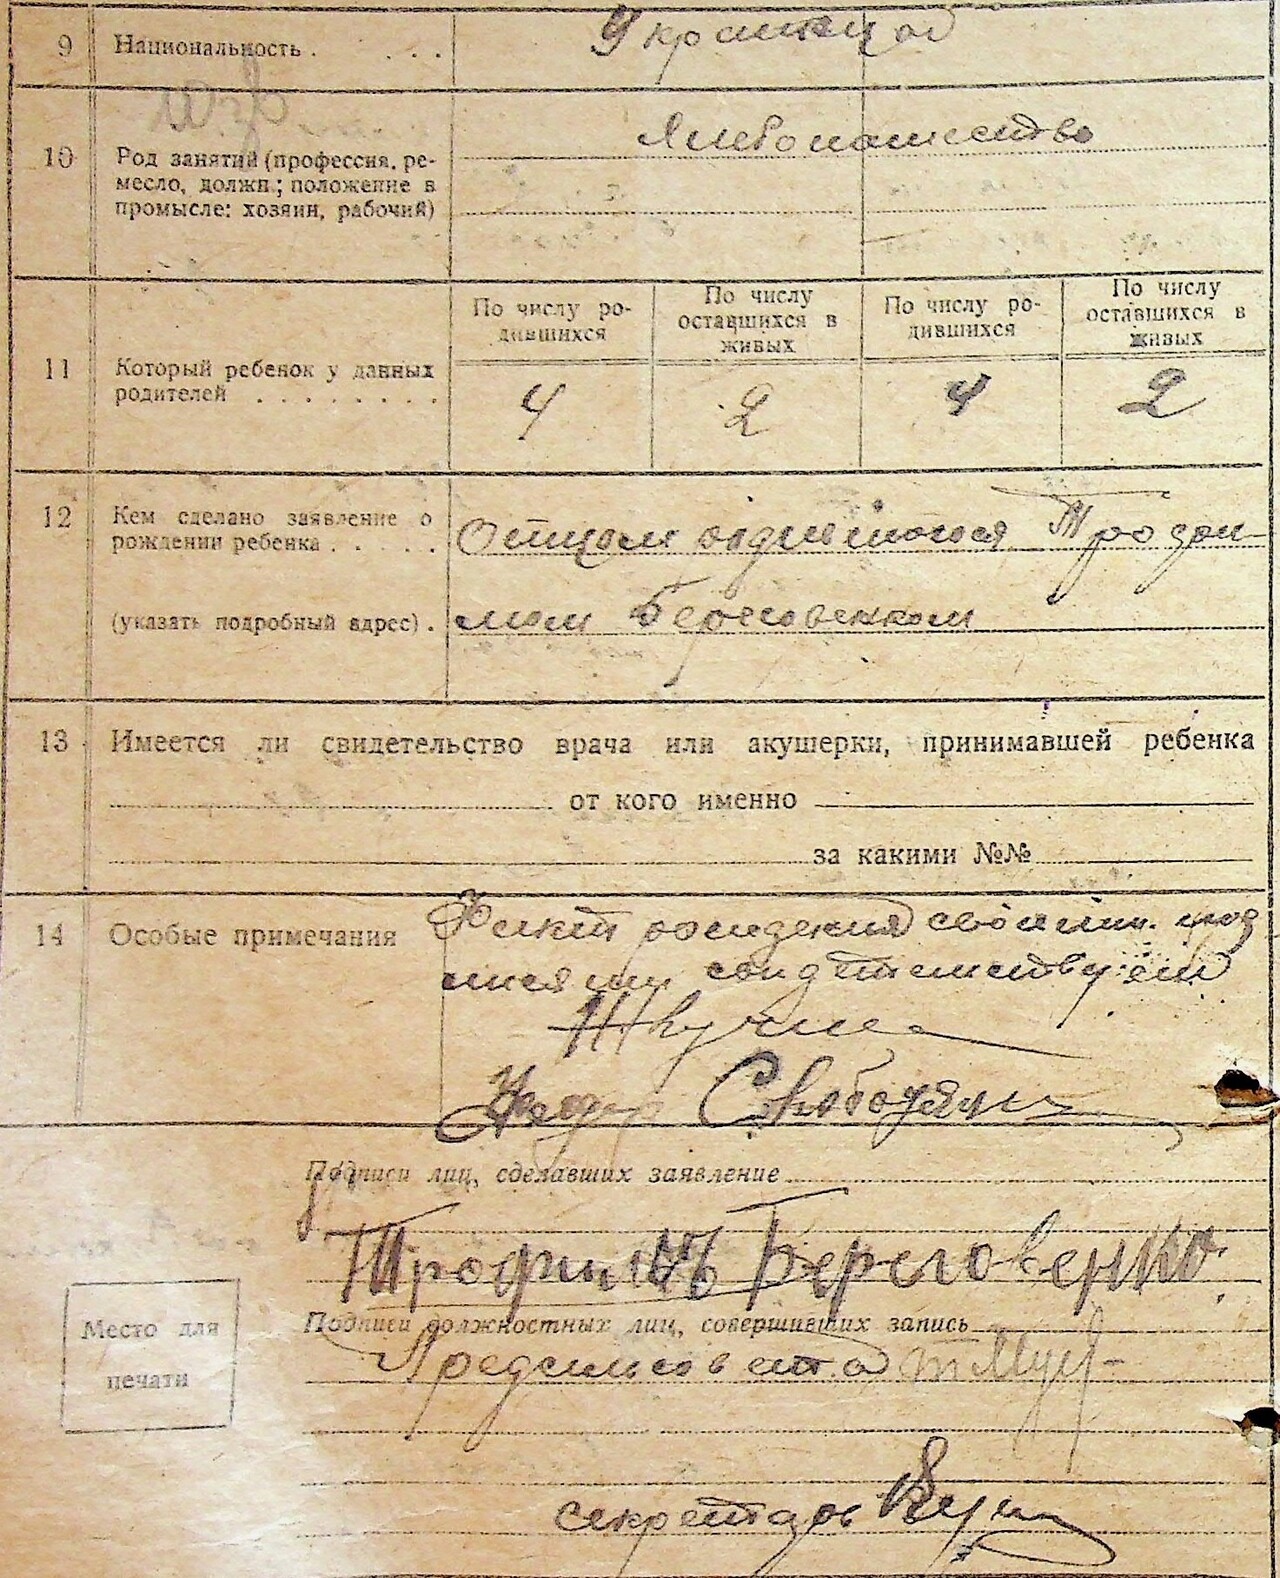 9 Национальность . . . . Украинцы
10 Род занятий (профессия, ре-
месло, должн.; положение в
промысле: хозяин, рабочий)
Хлебопашество
11 Который ребенок у данных
родителей . . . . . . . .
По числу ро-
дившихся
По числу
оставшихся в
живых
По числу ро-
дившихся
По числу
оставшихся в
живых
4 2 4 2
12 Кем сделано заявление о
рождении ребенка . . . . .
(указать подробный адрес) .
Отцом родившогося Трофи-
мом Береговенком
13 Имеется ли свидетельство врача или акушерки, принимавшей ребенка
от кого именно
за какими №№
14 Особые примечания
Факт рождения своими под
писями свидетельствуем
Федор
Подписи лиц, сделавших заявление
Трофимъ Береговенко.
Подписи должностных лиц, совершивших запись
Предсельсовета
секретарь
Место для
печати